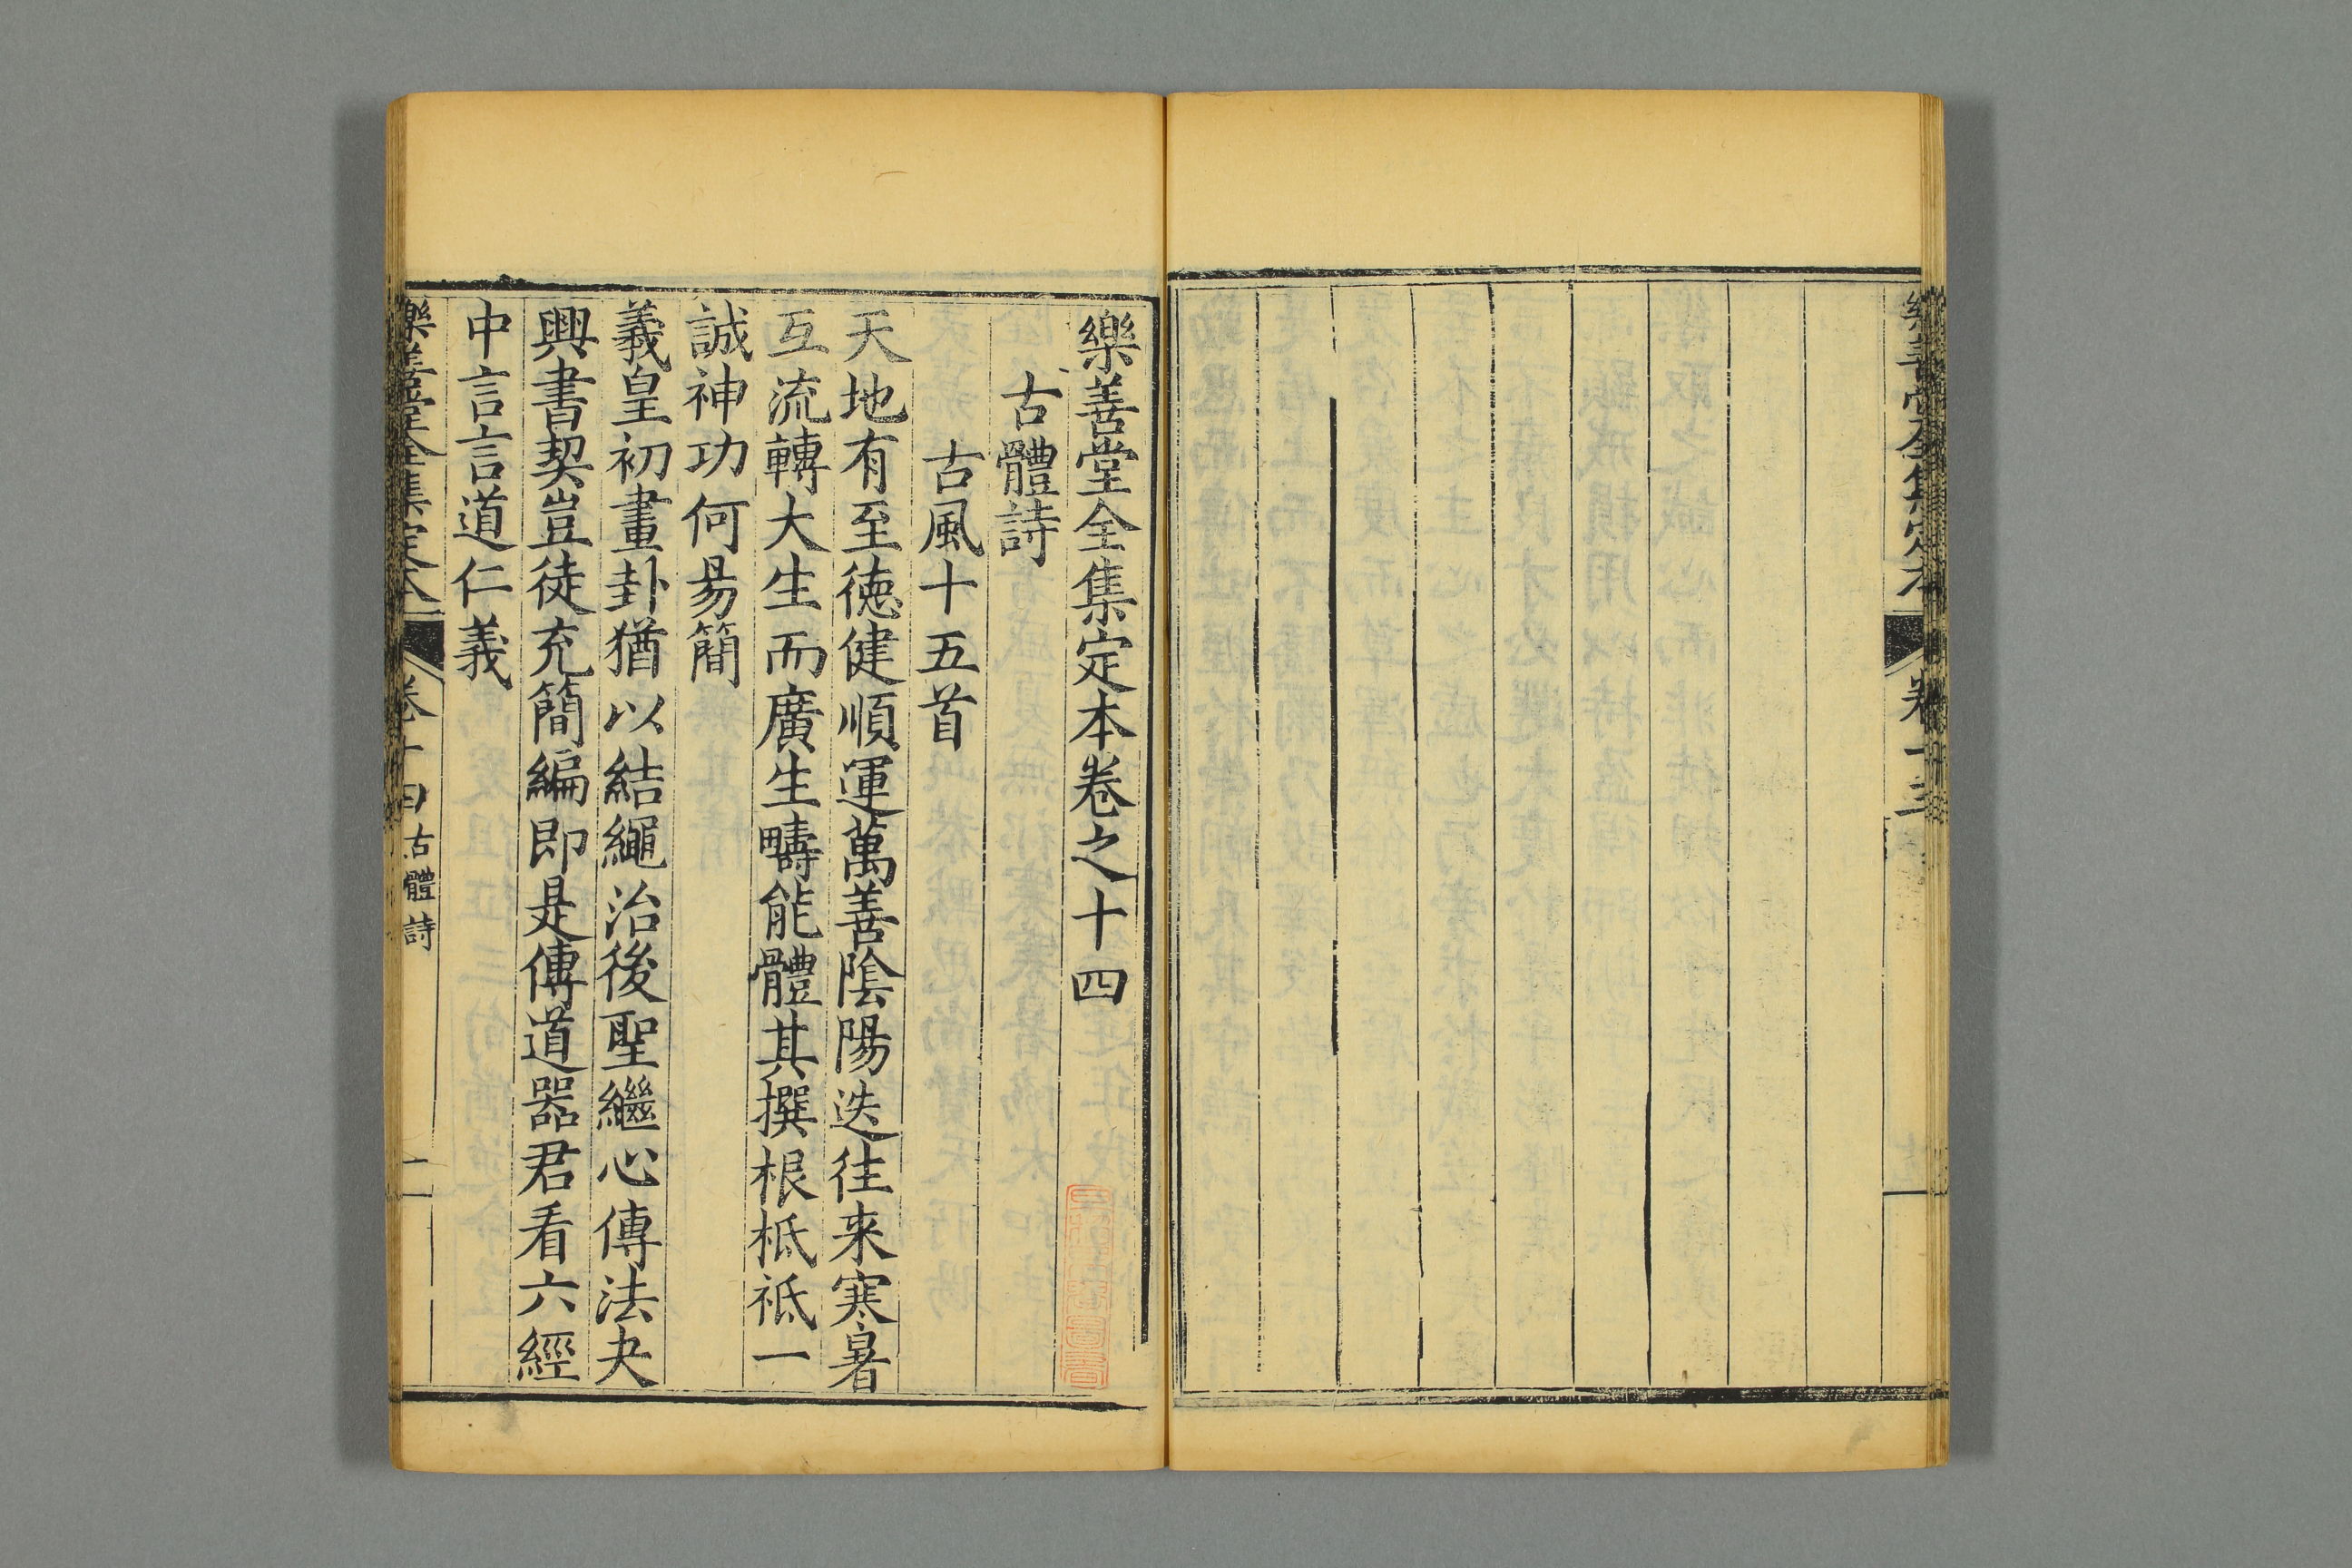 樂善堂全集定本
卷十三
樂善堂全集定本卷之十四
古體詩
古風十五首
天地有至徳健順運萬善陰陽迭往来寒暑
互流轉大生而廣生疇能體其撰根柢祗一
誠神功何易簡
義皇初畫卦猶以結繩治後聖繼心傳法夬
興書契豈徒充簡編即是傳道器君看六經
中言言道仁義
樂善堂全集定本
卷十四
古體詩
一